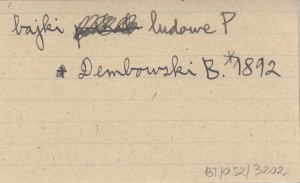 bajki ludowe P
* Dembowski B. *1892
BT/052/3202